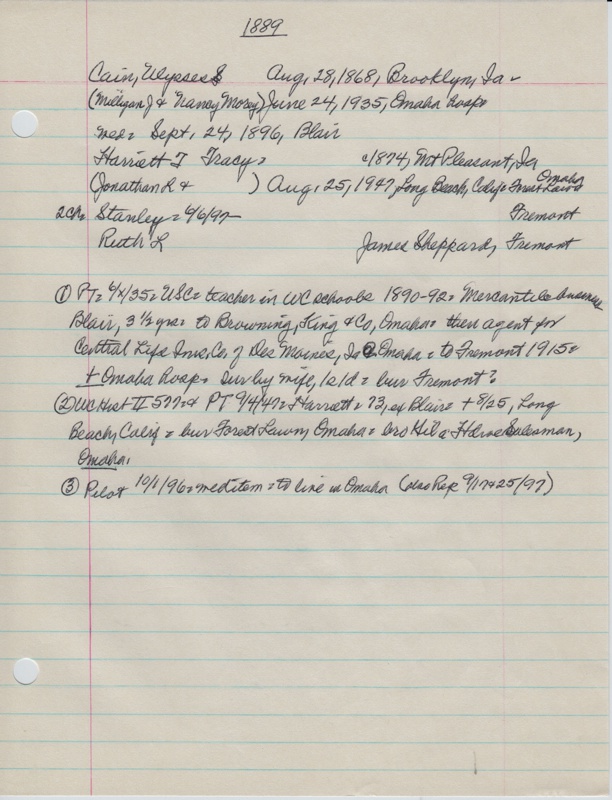 1889
Cain, Ulysses S Aug. 28, 1868, Brooklyn, Ia -
(Milligan J & Nancy Morey) June 24, 1935, Omaha hosp
med = Sept. 24, 1896, Blair
Harriett T Tracy = c1874, Mt Pleasant, Ia
(Jonathan R & ) Aug. 25, 1947, Long Beach, Calif = Forest Lawn Omaha
2ch = Stanley = 4/6/97 - Fremont
Ruth L James Sheppard, Fremont
① PT = 4/x/35 = USC = teacher in WC schools 1890-92 = Mercantile business
Blair, 3 1/2 yrs = to Browning, King & Co, Omaha = then agent for
Central Life Ins. Co. of Des Moines, Ia @ Omaha = to Fremont 1915 =
+ Omaha hosp = sur by wife, 1s 1d = bur Fremont?
② WC Hist II 577 = & PT 9/4/47 = Harriett = 73, ex Blair = + 8/25, Long
Beach, Calif = bur Forest Lawn, Omaha = bro a Salesman,
Omaha.
③ Pilot 10/1/96 = med item = to live in Omaha (also Rep 9/17 & 25/97)